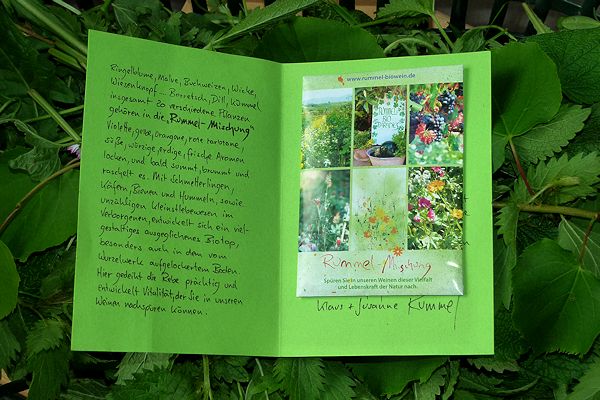 Ringelblume, Malve, Buchweizen, Wicke,
Wiesenknopf... Borretsch, Dill, Kümmel
insgesamt 20 verschiedene Pflanzen
gehören in die "Rummel-Mischung"
Violette, gelbe, orangene, rote Farbtöne
süße, würzige, erdige, frische Aromen
locken, und bald summt, brummt und
raschelt es. Mit Schmetterlingen,
Käfern, Bienen und Hummeln, sowie
unzähligen Kleinstlebewesen im
Verborgenen, entwickelt sich ein viel-
gestaltiges ausgeglichenes Biotop,
besonders auch in dem vom
Wurzelwerk aufgelockertem Boden.
Hier gedeiht die Rebe prächtig und
entwickelt Vitalität, der Sie in unseren
Weinen nachspüren können.
www.rummel-biowein.de
RUMMEL
BIO
Rummel-Mischung
Spüren Sie in unseren Weinen dieser Vielfalt
und Lebenskraft der Natur nach.
Klaus + Susanne Rummel